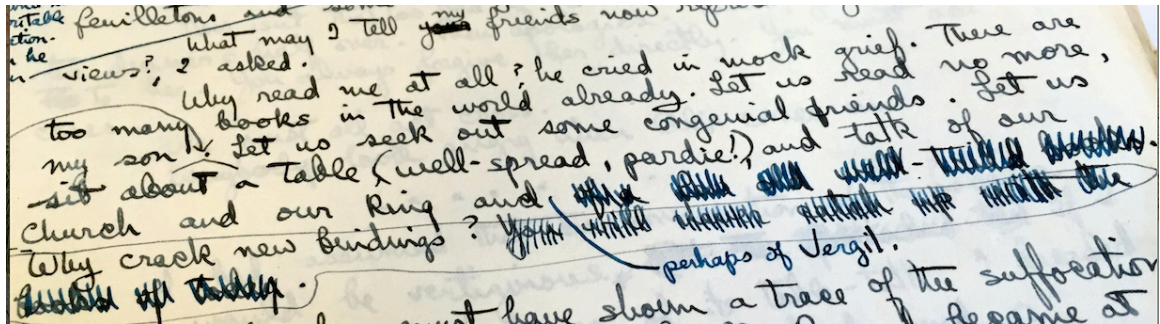 feuilletons and some
What may I tell my friends now
views?, I asked.
Why read me at all? he cried in mock grief. There are
too many books in the world already. Let us read no more,
my son. Let us seek out some congenial friends. Let us
sit about a table (well-spread, pardie!) and talk of our
Church and our King and
Why crack new bindings?
perhaps of Vergil.
have shown a trace of the suffocation
became at